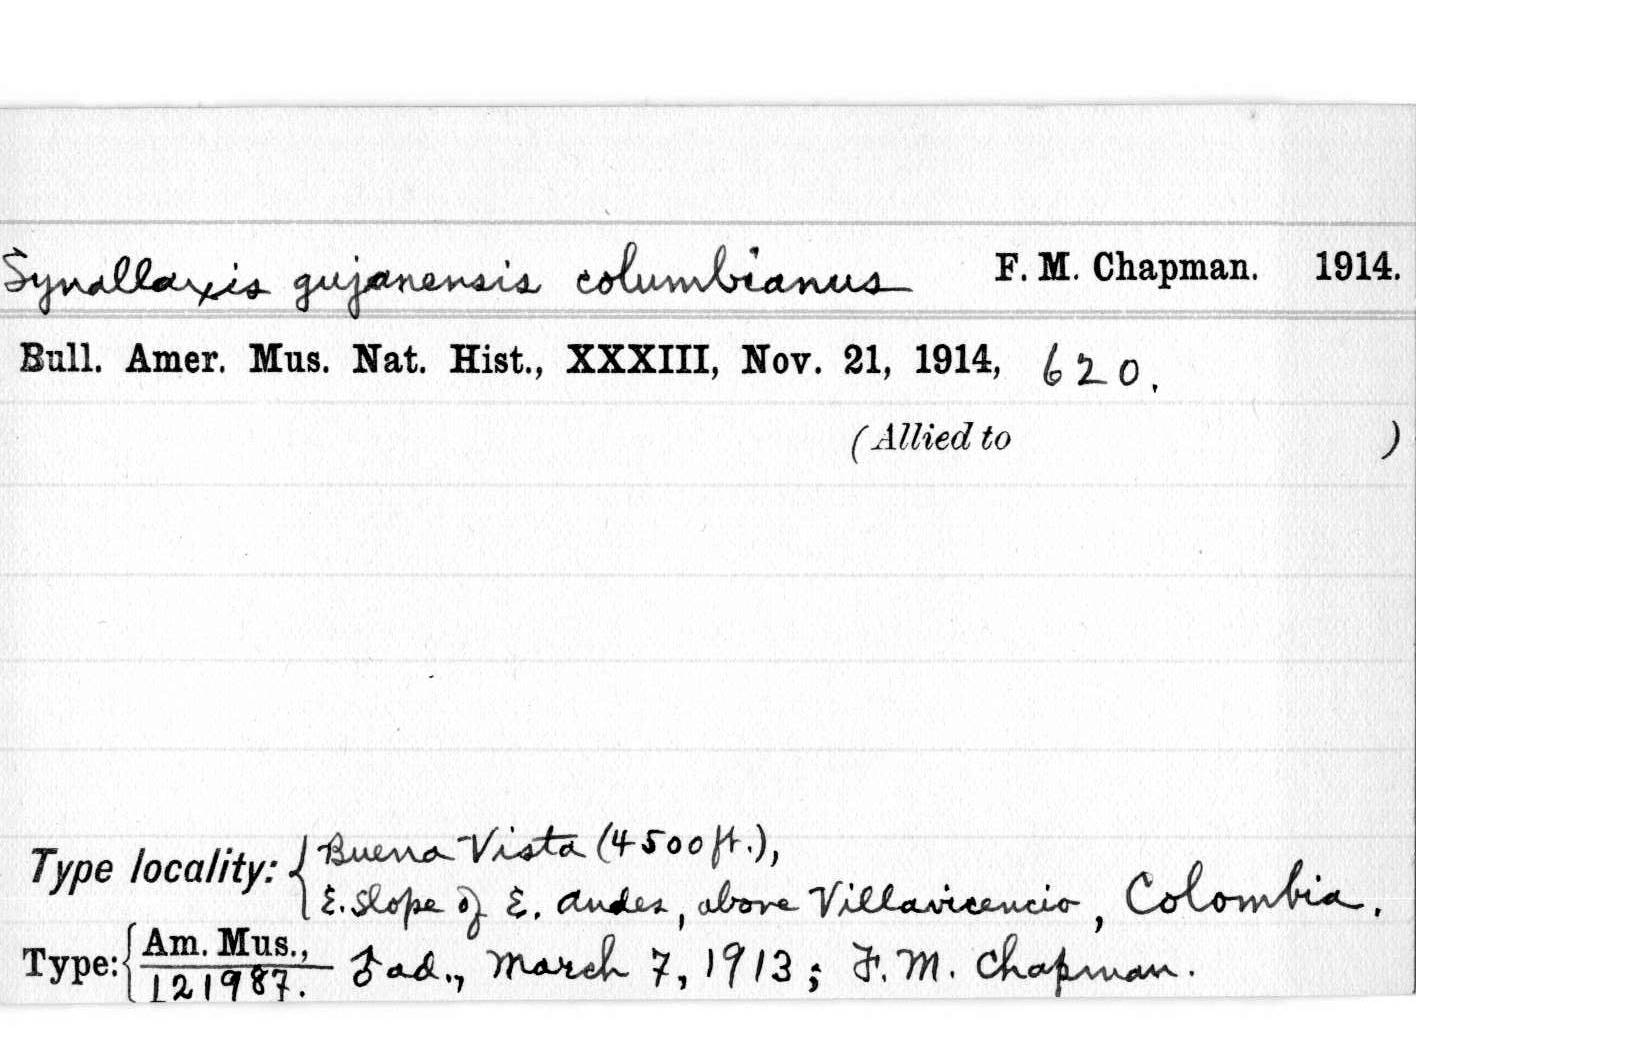 Synallaxis gujanensis columbianus F. M. Chapman. 1914.
Bull. Amer. Mus. Nat. Hist., XXXIII, Nov. 21, 1914, 620.
(Allied to )
Type locality: { Buena Vista (4500 ft.),
E. slope of E. Andes, above Villavicencio, Colombia.
Type: { Am. Mus.,
121987. ♂ ad., March 7, 1913; F. M. Chapman.